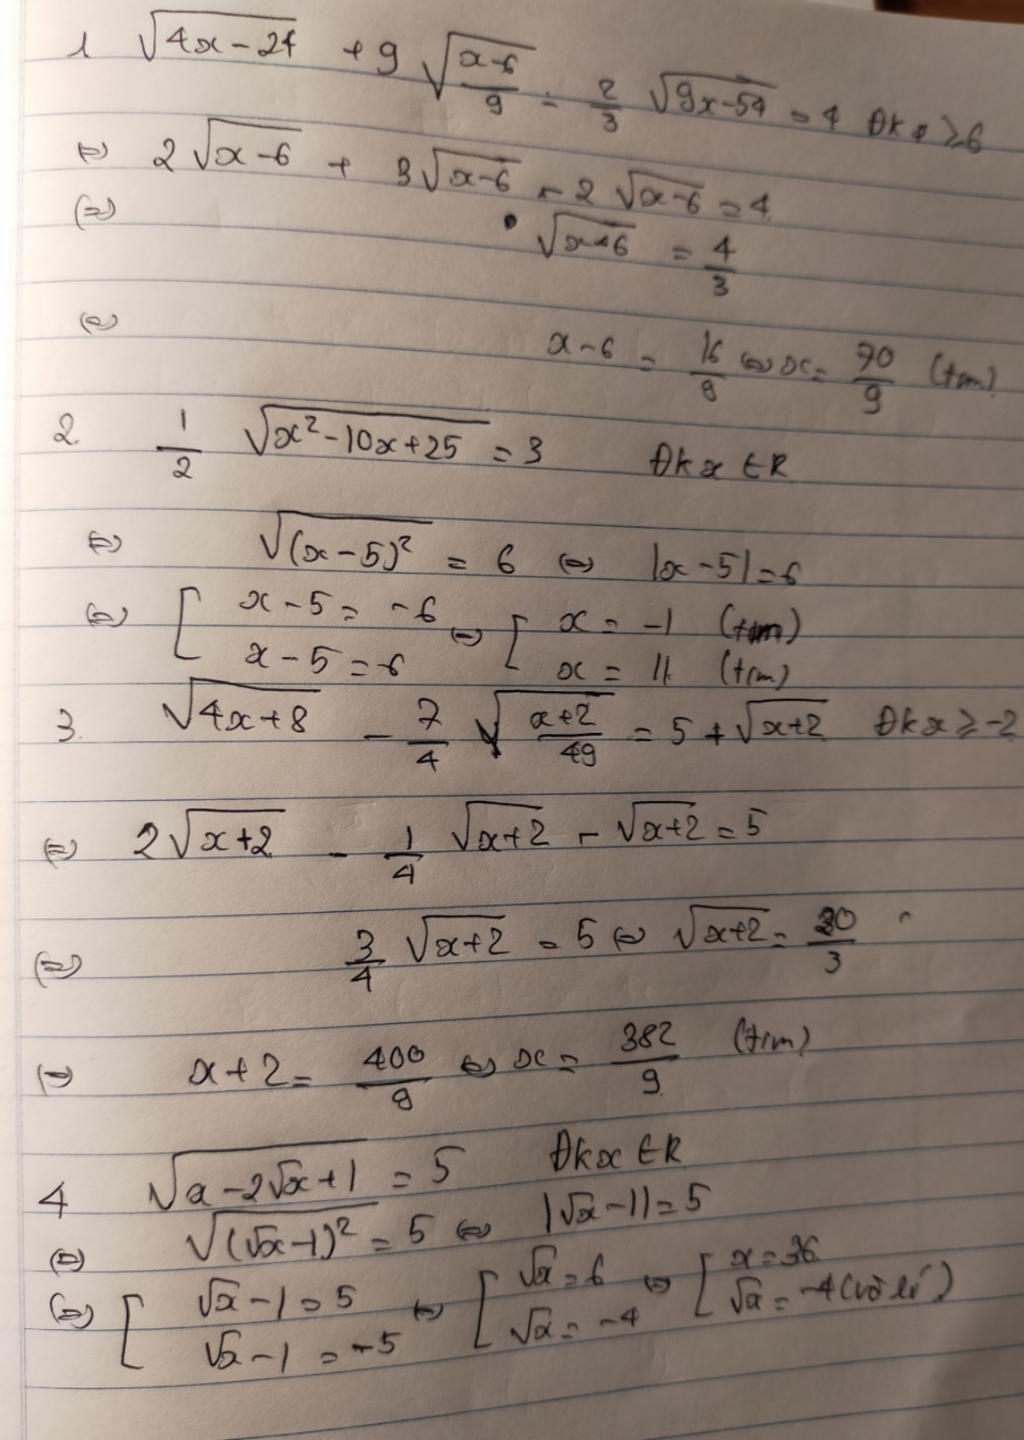 1 √(4x-24) + 9 √((x-6)/9) - 2/3 √(9x-54) = 4 Đk x ≥ 6
(=) 2√(x-6) + 3√(x-6) - 2√(x-6) = 4
(=) √(x-6) = 4/3
(=) x-6 = 16/9 (=) x = 70/9 (tm)
2. 1/2 √(x²-10x+25) = 3 Đk x ∈ R
(=) √((x-5)²) = 6 (=) |x-5| = 6
(=) [ x-5 = -6 (=) [ x = -1 (tm)
x-5 = 6 x = 11 (tm)
3. √(4x+8) - 7/4 √((x+2)/49) = 5 + √(x+2) Đk x ≥ -2
(=) 2√(x+2) - 1/4 √(x+2) - √(x+2) = 5
(=) 3/4 √(x+2) = 5 (=) √(x+2) = 20/3
(=) x+2 = 400/9 (=) x = 382/9 (tm)
4 √(x-2√x+1) = 5 Đk x ∈ R
(=) √((√x-1)²) = 5 (=) |√x-1| = 5
(=) [ √x-1 = 5 (=) [ √x = 6 (=) [ x = 36
√x-1 = -5 √x = -4 √x = -4 (vô lí)